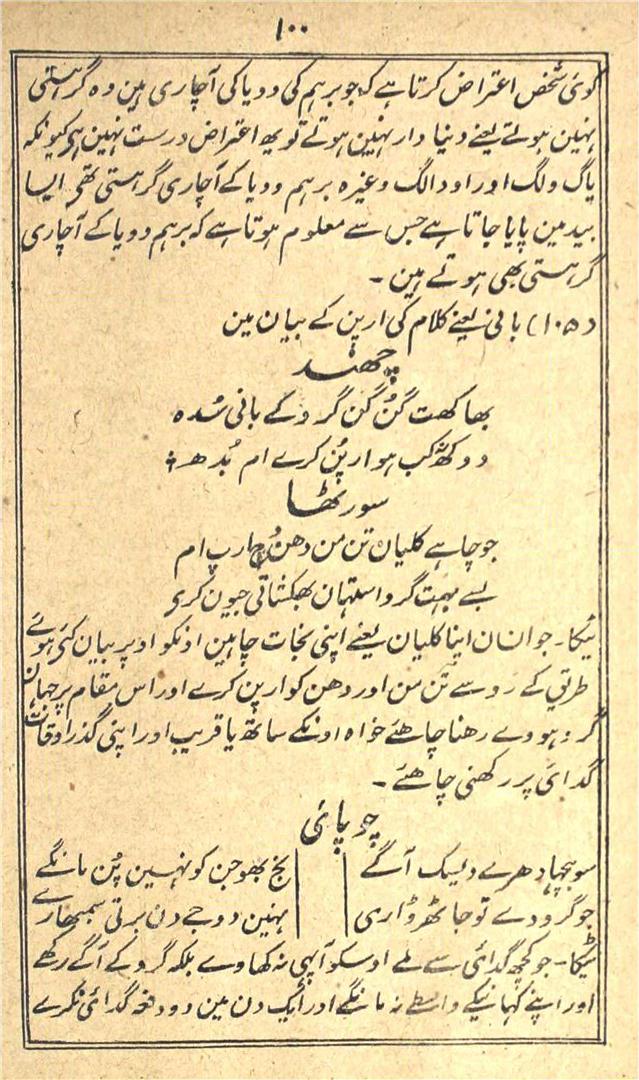 ۱۰۰
کوئی شخص اعتراض کرتا ہے کہ جو برہم کی ودیا کی آچاری ہین وہ گرہستی
نہین ہوتے یعنے دنیا دار نہین ہوتے تو یھ اعتراض درست نہین ہی کیونکہ
یاگ ولگ اور اودالگ وغیرہ برہم ودیا کے آچاری گرہستی تھی ایسا
بید مین پایا جاتا ہے جس سے معلوم ہوتا ہے کہ برہم ودیا کے آچاری
گرہستی بھی ہوتے ہین ۔
(۱۰۵) بانی یعنے کلام کی ارپن کے بیان مین
چھند
بھاکھت گُن گن گرو کے بانی سُدہ
دوکھ کب ہو ارپُن کرے ام بُدھ
سورٹھا
جو چاہے کلیان تن من دھن ارپ ام
بسے بہت گرو استہان بھکشاتی جیون کری
ٹیکا ۔ جو انسان اپنا کلیان یعنے اپنی نجات چاہین اونکو اوپر بیان کئی ہوئے
طریق کے رو سے تن من اور دھن کو ارپن کرے اور اس مقام پر جہان
گرو ہووے رھنا چاھئے خواہ اونکے ساتھ یا قریب اور اپنی گذر اوقات
گدائی پر رکھنی چاھئے ۔
چوپائی
سو بہچہا دھرے دلیک آگے نج بھوجن کو نہین پُن مانگے
جو گرو دے تو جاٹھر ڈاری نہین دوجے دن برتی سمبھارے
ٹیکا ۔ جو کچھ گدائی سے ملے اوسکو آپہی نہ کھاوے بلکہ گرو کے آگے رکھے
اور اپنے کہانیکے واسطے نہ مانگے اور ایک دن مین دو دفعہ گدائی نکرے